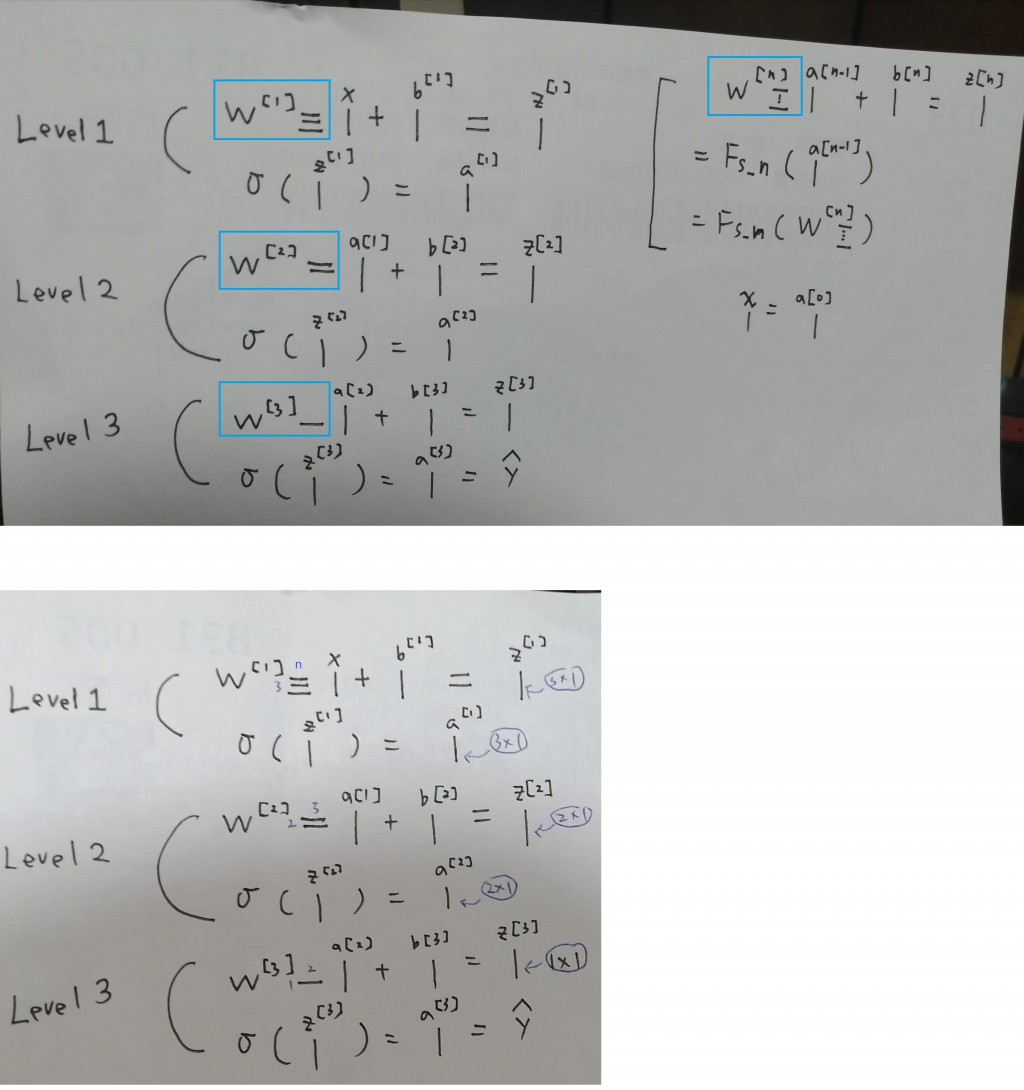 Level 1
W[1] ≡ x | + b[1] | = z[1] |
σ ( z[1] | ) = a[1] |
Level 2
W[2] = a[1] | + b[2] | = z[2] |
σ ( z[2] | ) = a[2] |
Level 3
W[3] — a[2] | + b[3] | = z[3] |
σ ( z[3] | ) = a[3] | = ŷ
W[n] a[n-1] | + b[n] | = z[n] |
= Fs_n ( a[n-1] | )
= Fs_n ( W[n] )
x | = a[0] |
Level 1
W[1] 3 ≡ n x | + b[1] | = z[1] | ← 3x1
σ ( z[1] | ) = a[1] | ← 3x1
Level 2
W[2] 2 = 3 a[1] | + b[2] | = z[2] | ← 2x1
σ ( z[2] | ) = a[2] | ← 2x1
Level 3
W[3] 1 — 2 a[2] | + b[3] | = z[3] | ← 1x1
σ ( z[3] | ) = a[3] | = ŷ